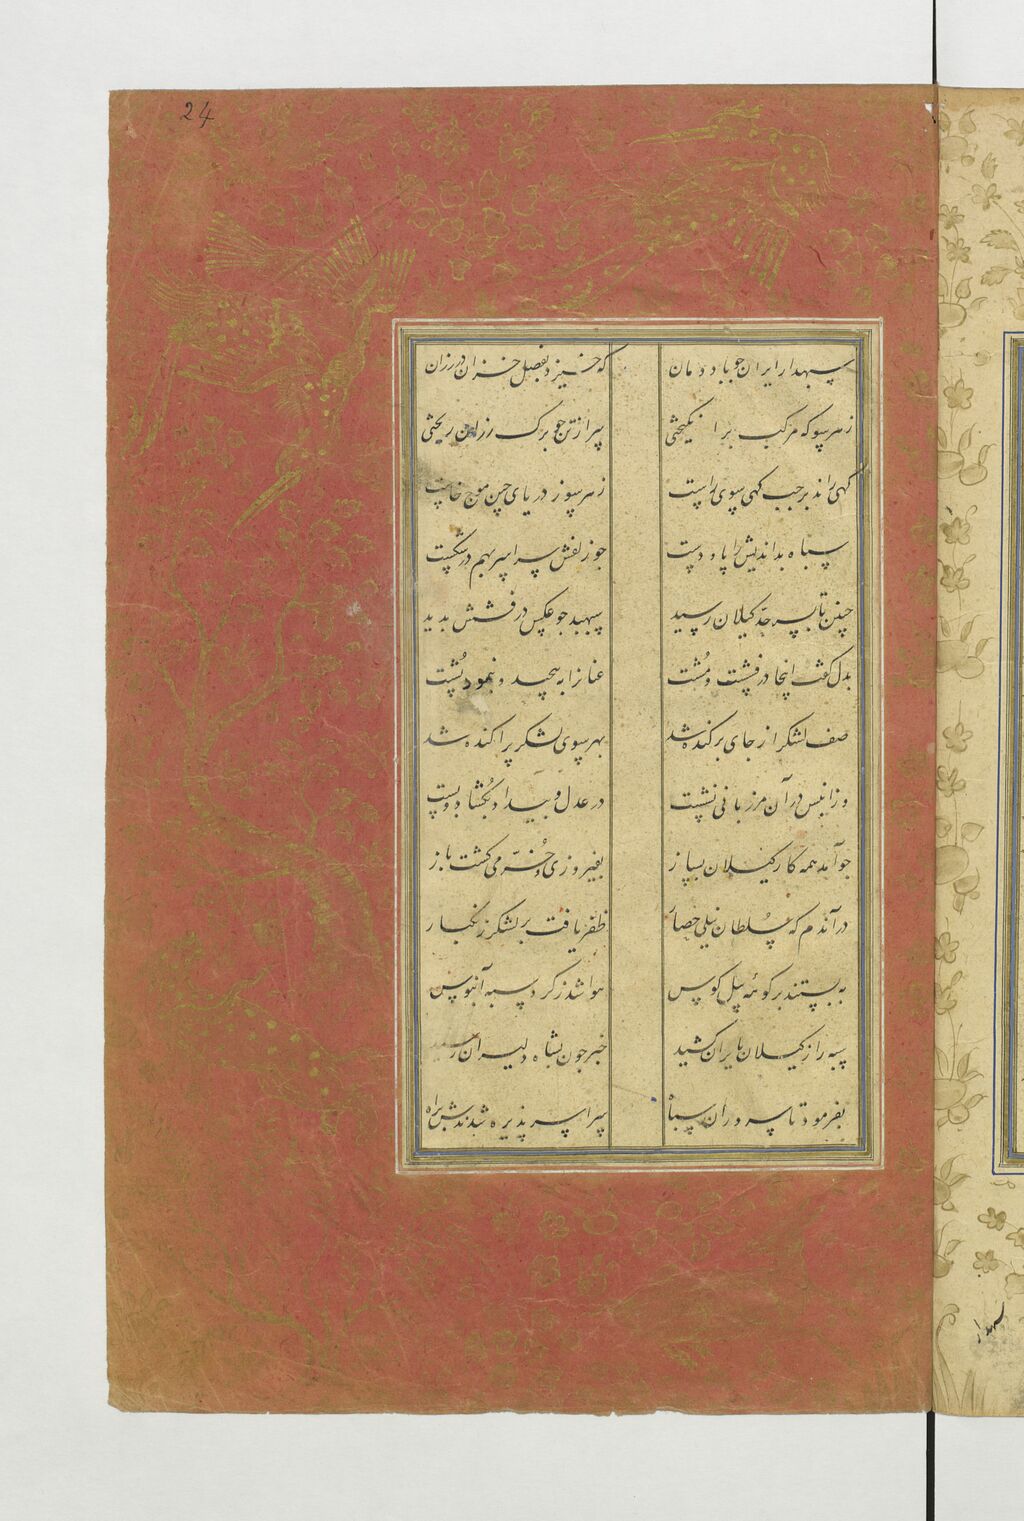 24
سپهدار ایران جو باد دمان که خیزد بفصل خزان در رزان
زهر سو که مرکب برانکیختی سر از تن جو برک رزان ریختی
کهی راند بر جب کهی سوی راست زهر سوز دریای چین موج خاست
سپاه بداندیش را پا و دست جو زلفش سراسر بهم در شکست
چنین تا بسر حد کیلان رسید سپهبد جو عکس درفشش بدید
بدل کفت اینجا درفشت و مشت عنانرا به پیچید و بنمود پشت
صف لشکر از جای برکنده شد بهر سوی لشکر پراکنده شد
وزانپس در آن مرز بانی نشست در عدل و بیداد بکشاد و بست
جو آمد همه کار کیلان بساز بفیروزی و خرمی کشت باز
در آندم که سلطان نیلی حصار ظفر یافت بر لشکر زنکبار
به بستند بر کوهه پیل کوس هوا شد ز کرد سپه آبنوس
سپه را ز کیلان بایران کشید خبر جون بشاه دلیران رسید
بفرمود تا سروران سپاه سراسر پذیره شدندش براه
سپهدار